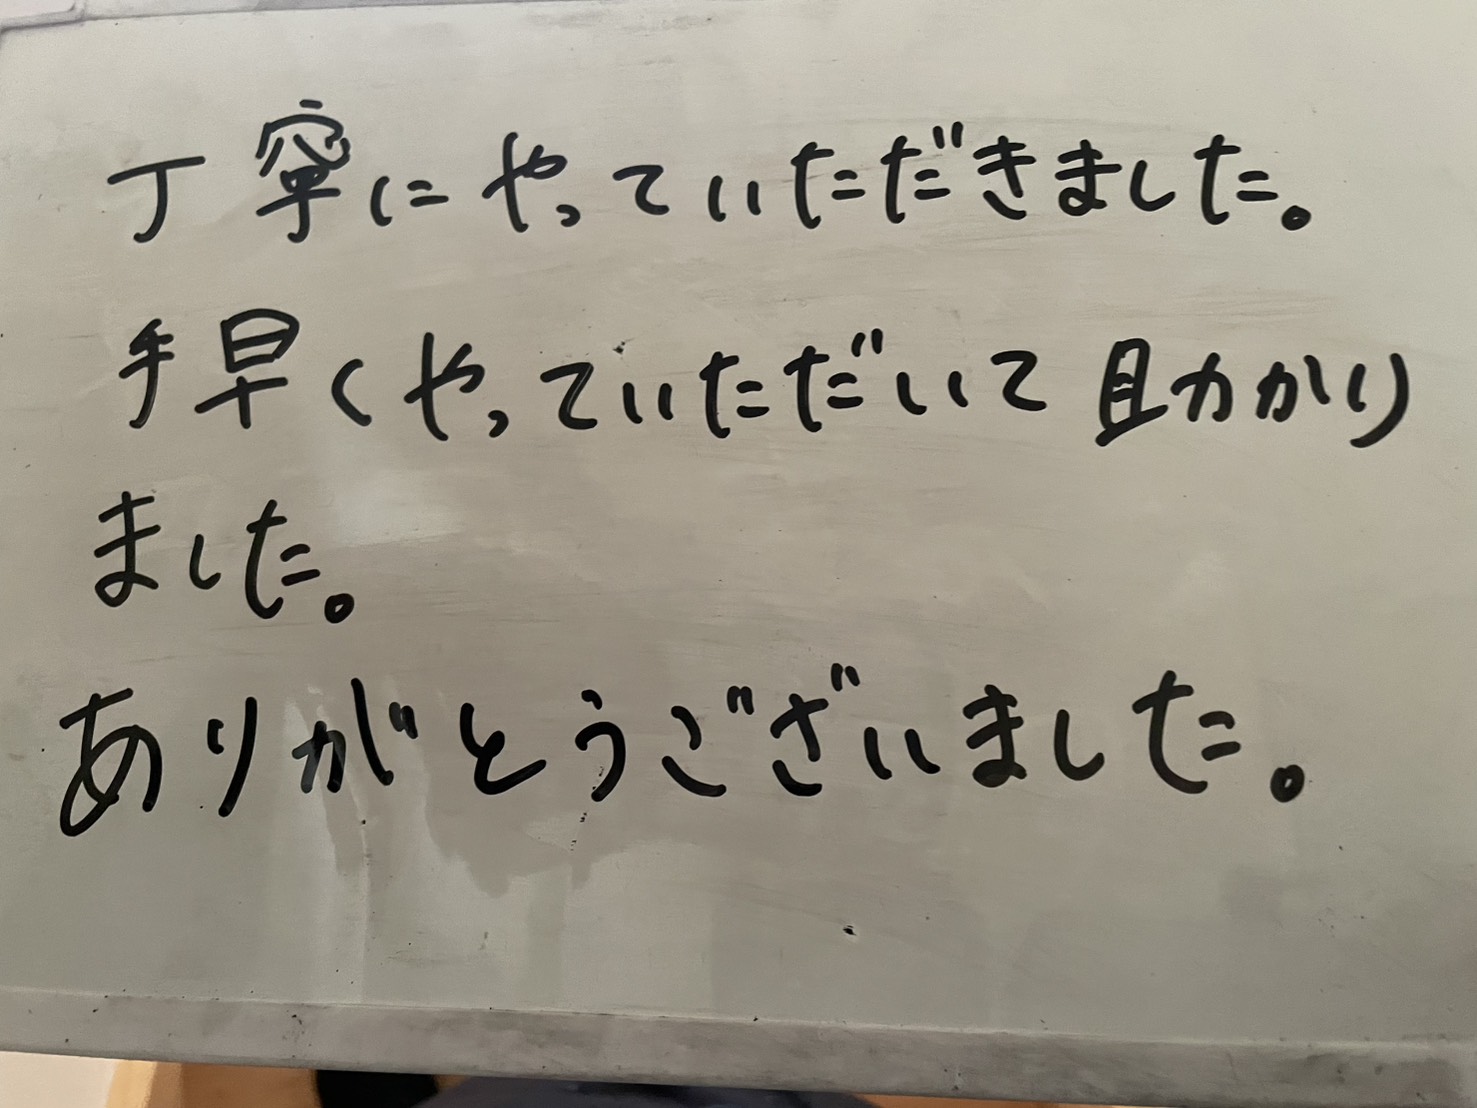 丁寧にやっていただきました。
手早くやっていただいて助かり
ました。
ありがとうございました。